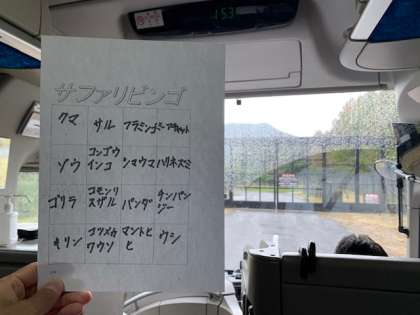 サファリビンゴ
クマ サル フラミンゴ ミーアキャット
ゾウ コンゴウ
インコ シマウマ ハリネズミ
ゴリラ コモンリ
スザル パンダ チンパン
ジー
キリン コツメカ
ワウソ マントヒ
ヒ ウシ